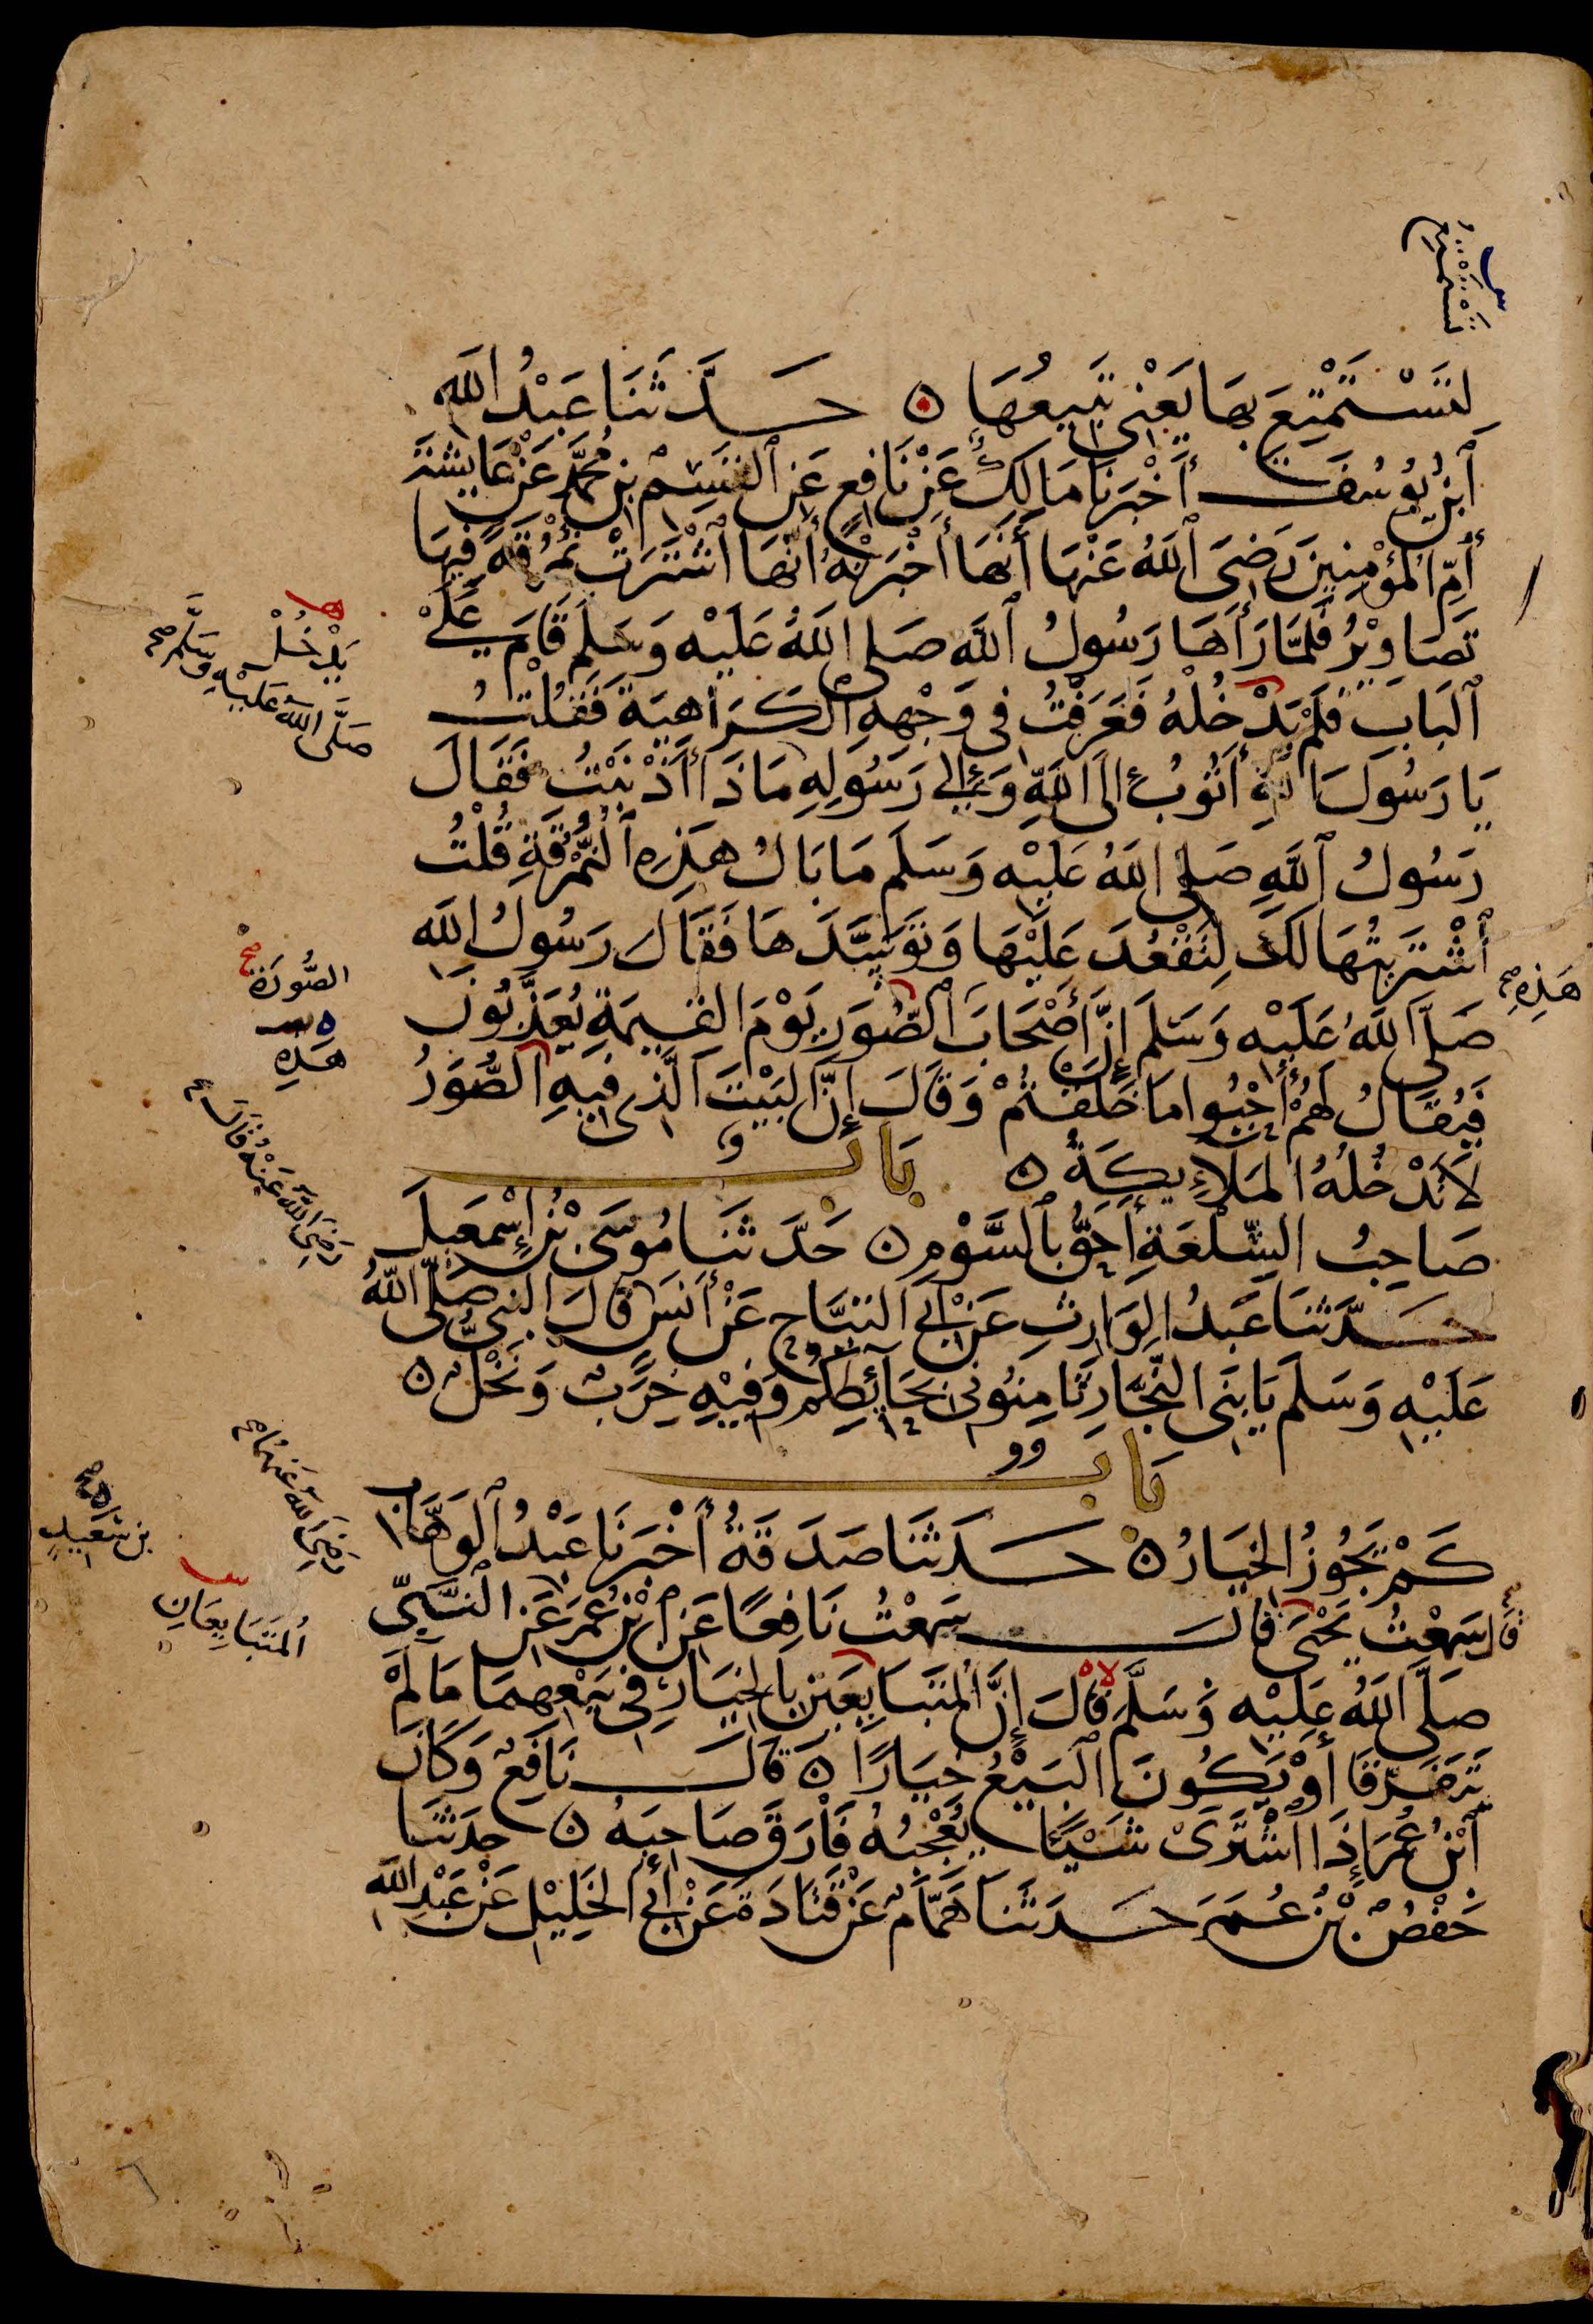 تَسْتَمْتِعُ
لِتَسْتَمْتِعَ بِهَا يَعْنِي تَبِيعُهَا ۞ حَدَّثَنَا عَبْدُ اللَّهِ
ٱبْنُ يُوسُفَ أَخْبَرَنَا مَالِكٌ عَنْ نَافِعٍ عَنِ ٱلْقَسِمِ بْنِ مُحَمَّدٍ عَنْ عَايِشَةَ
أُمِّ الْمُؤْمِنِينَ رَضِيَ ٱللَّهُ عَنْهَا أَنَّهَا أَخْبَرَتْهُ أَنَّهَا ٱشْتَرَتْ نُمْرُقَةً فِيهَا
تَصَاوِيرُ فَلَمَّا رَأَهَا رَسُولُ ٱللَّهِ صَلَى اللَّهُ عَلَيْهِ وَسَلَمَ قَامَ عَلَى
ٱلْبَابِ فَلَمْ يَدْخُلْهُ فَعَرَفْتُ فِي وَجْهِهِ الْكَرَاهِيَةَ فَقُلْتُ
يَدْخُلْ
صَلَّى اللَّهُ عَلَيْهِ وَسَلَّمَ صح
يَا رَسُولَ اللَّهِ أَتُوبُ إِلَى اللَّهِ وَإِلَى رَسُولِهِ مَاذَا أَذْنَبْتُ فَقَالَ
رَسُولُ ٱللَّهِ صَلَى اللَّهُ عَلَيْهِ وَسَلَمَ مَا بَالُ هَذِهِ ٱلنُّمْرُقَةِ قُلْتُ
ٱشْتَرَيْتُهَا لَكَ لِتَقْعُدَ عَلَيْهَا وَتَوَسَّدَهَا فَقَالَ رَسُولُ اللَّهِ
هَذِهِ صح
صَلَّى اللَّهُ عَلَيْهِ وَسَلَمَ إِنَّ أَصْحَابَ ٱلصُّوَرِ يَوْمَ الْقِيمَةِ يُعَذَّبُونَ
الصُّورَةِ
هَذِهِ
فَيُقَالُ لَهُمْ أَحْيُوا مَا خَلَقْتُمْ وَقَالَ إِنَّ الْبَيْتَ الَّذِي فِيهِ الصُّوَرُ
لَا تَدْخُلُهُ الْمَلَايِكَةُ ۞ بَابٌ
صَاحِبُ السِّلْعَةِ أَحَقُّ بِالسَّوْمِ ۞ حَدَّثَنَا مُوسَى بْنُ إِسْمَعِيلَ
حَدَّثَنَا عَبْدُ الْوَارِثِ عَنْ أَبِي التَّيَّاحِ عَنْ أَنَسٍ قَالَ النَّبِيُّ صَلَّى اللَّهُ
رَضِيَ اللَّهُ عَنْهُ قَالَ صح
عَلَيْهِ وَسَلَمَ يَا بَنِي النَّجَّارِ ثَامِنُونِي بِحَائِطِكُمْ وَفِيهِ خِرَبٌ وَنَخْلٌ ۞
بَابٌ
كَمْ يَجُوزُ الْخِيَارُ ۞ حَدَثَنَا صَدَقَةُ أَخْبَرَنَا عَبْدُ ٱلْوَهَّابِ
قَالَ سَمِعْتُ يَحْيَى قَالَ سَمِعْتُ نَافِعًا عَنِ ٱبْنِ عُمَرَ عَنِ النَّبِيِّ
بن سَعِيدٍ
رَضِيَ اللَّهُ عَنْهُمَا صح
صَلَّى اللَّهُ عَلَيْهِ وَسَلَّمَ قَالَ إِنَّ الْمُتَبَايِعَيْنِ بِالْخِيَارِ فِي بَيْعِهِمَا مَا لَمْ
الْمُتَبَايِعَانِ
يَتَفَرَّقَا أَوْ يَكُونَ الْبَيْعُ خِيَارًا ۞ قَالَ نَافِعٌ وَكَانَ
ٱبْنُ عُمَرَ إِذَا اشْتَرَى شَيْئًا يُعْجِبُهُ فَارَقَ صَاحِبَهُ ۞ حَدَثَنَا
حَفْصُ بْنُ عُمَرَ حَدَثَنَا هَمَّامٌ عَنْ قَتَادَةَ عَنْ أَبِي الْخَلِيْلِ عَنْ عَبْدِ اللَّهِ